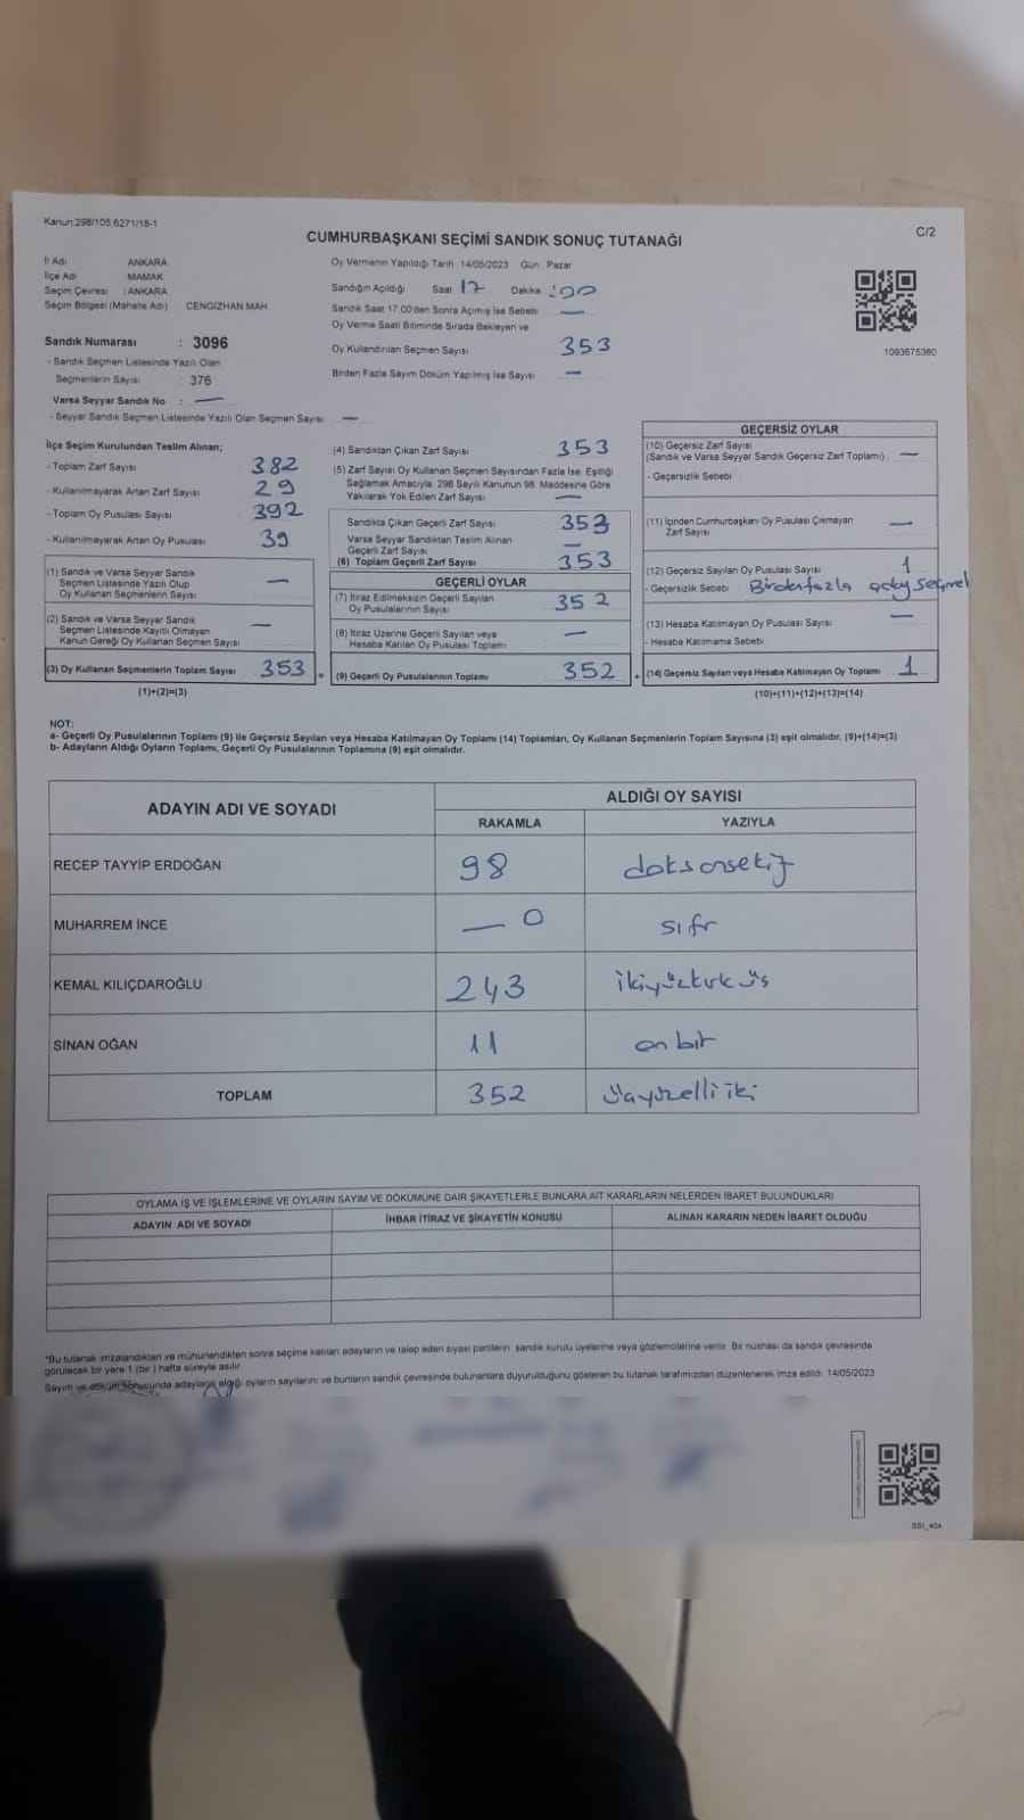 Kanun:298/105,6271/18-1
C/2
CUMHURBAŞKANI SEÇİMİ SANDIK SONUÇ TUTANAĞI
İl Adı ANKARA
İlçe Adı MAMAK
Seçim Çevresi : ANKARA
Seçim Bölgesi (Mahalle Adı) CENGİZHAN MAH
Sandık Numarası : 3096
- Sandık Seçmen Listesinde Yazılı Olan
Seçmenlerin Sayısı 376
Varsa Seyyar Sandık No : —
- Seyyar Sandık Seçmen Listesinde Yazılı Olan Seçmen Sayısı —
Oy Vermenin Yapıldığı Tarih : 14/05/2023 Gün : Pazar
Sandığın Açıldığı Saat 17 Dakika :00
Sandık Saat 17.00'den Sonra Açılmış İse Sebebi —
Oy Verme Saati Bitiminde Sırada Bekleyen ve
Oy Kullandırılan Seçmen Sayısı 353
Birden Fazla Sayım Döküm Yapılmış İse Sayısı —
1093675360
İlçe Seçim Kurulundan Teslim Alınan;
- Toplam Zarf Sayısı 382
- Kullanılmayarak Artan Zarf Sayısı 29
- Toplam Oy Pusulası Sayısı 392
- Kullanılmayarak Artan Oy Pusulası 39
(1) Sandık ve Varsa Seyyar Sandık
Seçmen Listesinde Yazılı Olup
Oy Kullanan Seçmenlerin Sayısı —
(2) Sandık ve Varsa Seyyar Sandık
Seçmen Listesinde Kayıtlı Olmayan
Kanun Gereği Oy Kullanan Seçmen Sayısı —
(3) Oy Kullanan Seçmenlerin Toplam Sayısı 353
(1)+(2)=(3)
(4) Sandıktan Çıkan Zarf Sayısı 353
(5) Zarf Sayısı Oy Kullanan Seçmen Sayısından Fazla İse, Eşitliği
Sağlamak Amacıyla, 298 Sayılı Kanunun 98. Maddesine Göre
Yakılarak Yok Edilen Zarf Sayısı —
Sandıkta Çıkan Geçerli Zarf Sayısı 353
Varsa Seyyar Sandıktan Teslim Alınan
Geçerli Zarf Sayısı —
(6) Toplam Geçerli Zarf Sayısı 353
GEÇERLİ OYLAR
(7) İtiraz Edilmeksizin Geçerli Sayılan
Oy Pusulalarının Sayısı 352
(8) İtiraz Üzerine Geçerli Sayılan veya
Hesaba Katılan Oy Pusulası Toplamı —
(9) Geçerli Oy Pusulalarının Toplamı 352
GEÇERSİZ OYLAR
(10) Geçersiz Zarf Sayısı
(Sandık ve Varsa Seyyar Sandık Geçersiz Zarf Toplamı) —
- Geçersizlik Sebebi
(11) İçinden Cumhurbaşkanı Oy Pusulası Çıkmayan
Zarf Sayısı —
(12) Geçersiz Sayılan Oy Pusulası Sayısı 1
- Geçersizlik Sebebi Birden fazla
(13) Hesaba Katılmayan Oy Pusulası Sayısı —
- Hesaba Katılmama Sebebi
(14) Geçersiz Sayılan veya Hesaba Katılmayan Oy Toplamı 1
(10)+(11)+(12)+(13)=(14)
NOT:
a- Geçerli Oy Pusulalarının Toplamı (9) ile Geçersiz Sayılan veya Hesaba Katılmayan Oy Toplamı (14) Toplamları, Oy Kullanan Seçmenlerin Toplam Sayısına (3) eşit olmalıdır. (9)+(14)=(3)
b- Adayların Aldığı Oyların Toplamı, Geçerli Oy Pusulalarının Toplamına (9) eşit olmalıdır.
ADAYIN ADI VE SOYADI
ALDIĞI OY SAYISI
RAKAMLA YAZIYLA
RECEP TAYYİP ERDOĞAN 98 doksansekiz
MUHARREM İNCE — 0 sıfır
KEMAL KILIÇDAROĞLU 243 ikiyüzkırküç
SİNAN OĞAN 11 on bir
TOPLAM 352 üçyüzelliiki
OYLAMA İŞ VE İŞLEMLERİNE VE OYLARIN SAYIM VE DÖKÜMÜNE DAİR ŞİKAYETLERLE BUNLARA AİT KARARLARIN NELERDEN İBARET BULUNDUKLARI
ADAYIN ADI VE SOYADI İHBAR İTİRAZ VE ŞİKAYETİN KONUSU ALINAN KARARIN NEDEN İBARET OLDUĞU
*Bu tutanak imzalandıktan ve mühürlendikten sonra seçime katılan adayların ve talep eden siyasi partilerin sandık kurulu üyelerine veya gözlemcilerine verilir. Bir nüshası da sandık çevresinde
görülecek bir yere 1 (bir) hafta süreyle asılır.
Sayım ve döküm sonucunda adayların aldığı oyların sayılarını ve bunların sandık çevresinde bulunanlara duyurulduğunu gösteren bu tutanak tarafımızdan düzenlenerek imza edildi. 14/05/2023